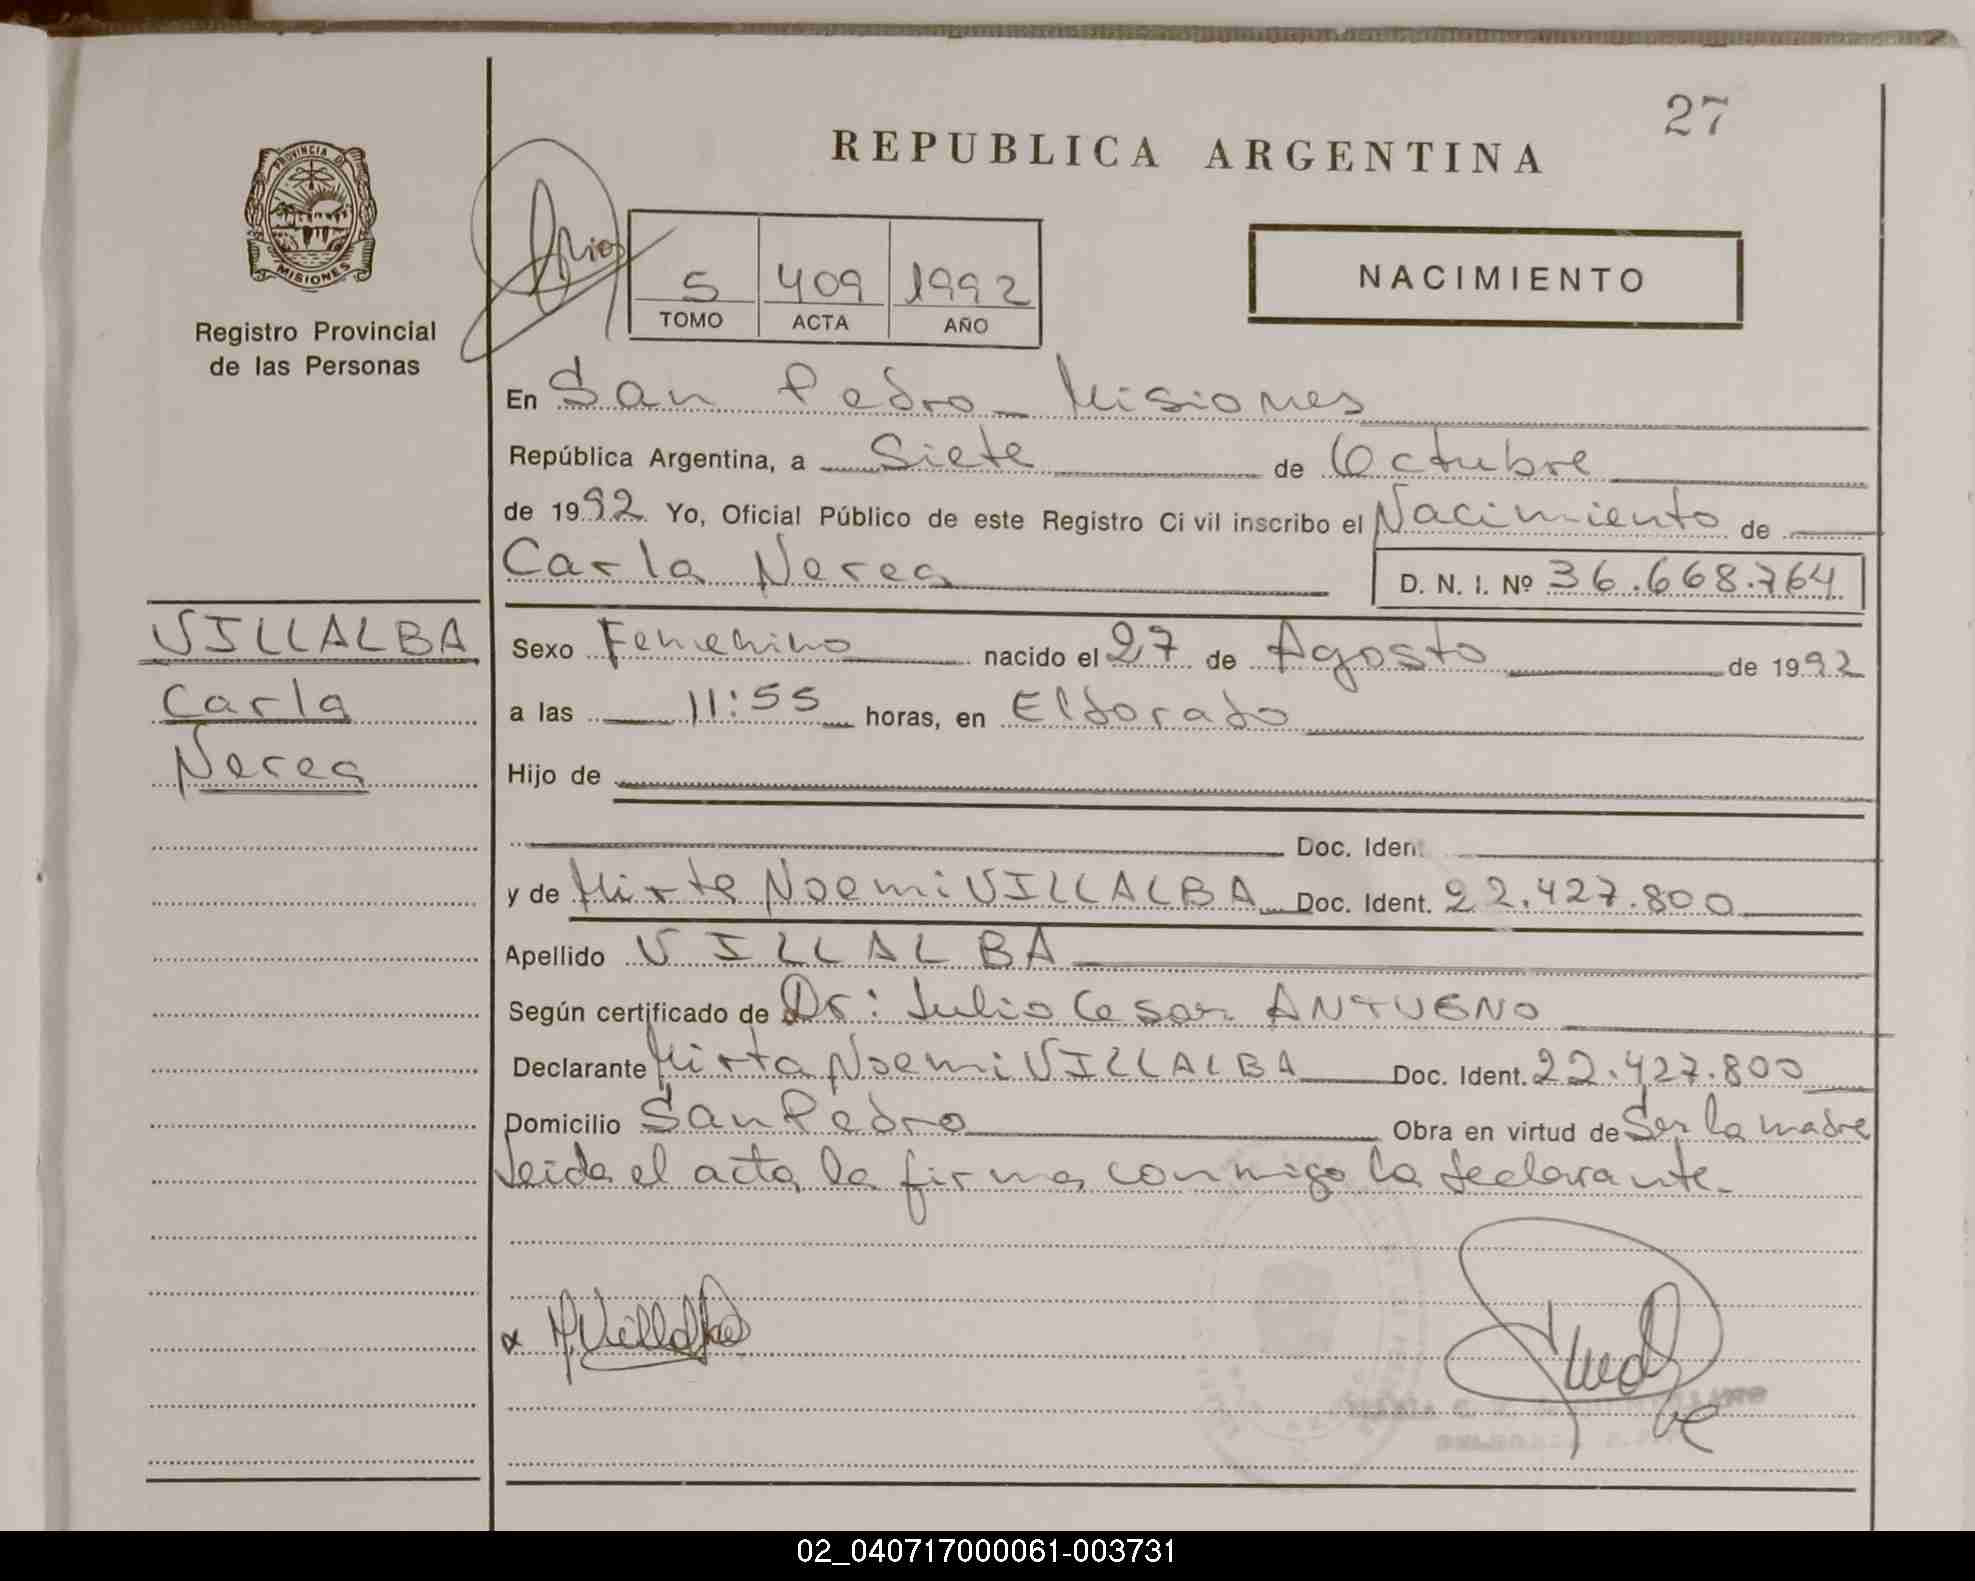 27
REPUBLICA ARGENTINA
PROVINCIA DE
MISIONES
Registro Provincial
de las Personas
5 409 1992
TOMO ACTA AÑO
NACIMIENTO
En San Pedro Misiones
República Argentina, a Siete de Octubre
de 1992 Yo, Oficial Público de este Registro Ci vil inscribo el Nacimiento de
Carla Nerea D. N. I. Nº 36.668.764
VILLALBA
Carla
Nerea
Sexo Femenino nacido el 27 de Agosto de 1992
a las 11:55 horas, en Eldorado
Hijo de
Doc. Ident.
y de Mirta Noemi VILLALBA Doc. Ident. 22.427.800
Apellido VILLALBA
Según certificado de Dr: Julio Cesar ANTUENO
Declarante Mirta Noemi VILLALBA Doc. Ident. 22.427.800
Domicilio San Pedro Obra en virtud de Ser la madre
Leida el acta la firma conmigo la declarante.
M. Villalba
02_040717000061-003731